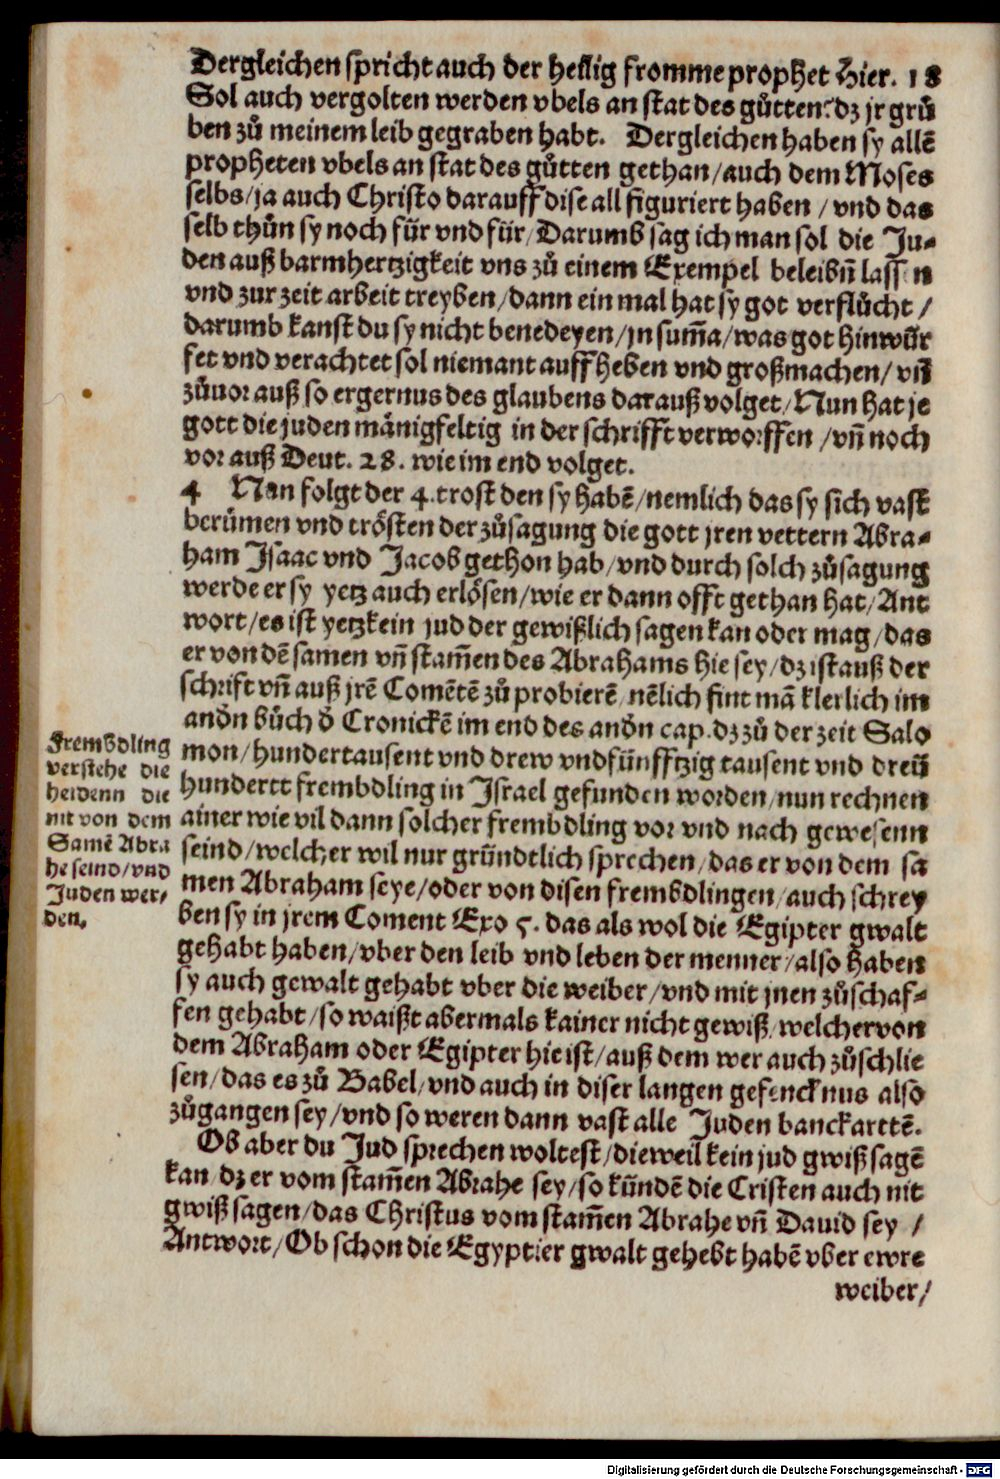 Dergleichen spricht auch der heilig fromme prophet Hier. 18
Sol auch vergolten werden vbels an stat des gůtten: dz jr grů
ben zů meinem leib gegraben habt. Dergleichen haben sy allē
propheten vbels an stat des gůtten gethan/auch dem Moses
selbs/ja auch Christo darauff dise all figuriert haben/vnd das
selb thůn sy noch für vnd für/Darumb sag ich man sol die Ju-
den auß barmhertzigkeit vns zů einem Exempel beleibn̄ lassen
vnd zur zeit arbeit treyben/dann ein mal hat sy got verflůcht/
darumb kanst du sy nicht benedeyen/jn sum̄a/was got hinwür
fet vnd verachtet sol niemant auff heben vnd großmachen/vn̄
zůuor auß so ergernus des glaubens darauß volget/Nun hat je
gott die juden mänigfeltig in der schrifft verworffen/vn̄ noch
vor auß Deut. 28. wie im end volget.
4 Nun folgt der 4. trost den sy habē/nemlich das sy sich vast
berümen vnd trösten der zůsagung die gott jren vettern Abra-
ham Isaac vnd Jacob gethon hab/vnd durch solch zůsagung
werde er sy yetz auch erlösen/wie er dann offt gethan hat/Ant
wort/es ist yetz kein jud der gewißlich sagen kan oder mag/das
er von dē samen vn̄ stam̄en des Abrahams hie sey/dz ist auß der
schrift vn̄ auß jrē Comētē zů probierē/nēlich fint mā klerlich im
andn̄ bůch d̄ Cronickē im end des andn̄ cap. dz zů der zeit Salo
mon/hundertausent vnd drew vnd fünfftzig tausent vnd dreü
hundertt frembdling in Israel gefunden worden/nun rechnen
ainer wie vil dann solcher frembdling vor vnd nach gewesenn
seind/welcher wil nur gründtlich sprechen/das er von dem sa
men Abraham seye/oder von disen frembdlingen/auch schrey
ben sy in jrem Coment Exo 5. das als wol die Egipter gwalt
gehabt haben/vber den leib vnd leben der menner/also haben
sy auch gewalt gehabt vber die weiber/vnd mit jnen zůschaf-
fen gehabt/so waißt abermals kainer nicht gewiß/welcher von
dem Abraham oder Egipter hie ist/auß dem wer auch zůschlie
sen/das es zů Babel/vnd auch in diser langen gefencknus also
zůgangen sey/vnd so weren dann vast alle Juden banckarttē.
Ob aber du Jud sprechen woltest/dieweil kein jud gwiß sagē
kan/dz er vom stam̄en Abrahe sey/so kündē die Cristen auch nit
gwiß sagen/das Christus vom stam̄en Abrahe vn̄ Dauid sey/
Antwort/Ob schon die Egyptier gwalt gehebt habē vber ewre
weiber/
Frembdling
verstehe die
heidenn die
nit von dem
Samē Abra
he seind/vnd
Juden wer/
den.
Digitalisierung gefördert durch die Deutsche Forschungsgemeinschaft - DFG